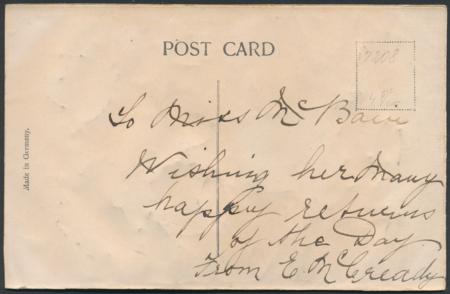 POST CARD
17208
Made in Germany.
To Miss McBain
Wishing her many
happy returns
of the Day
From E. McCready